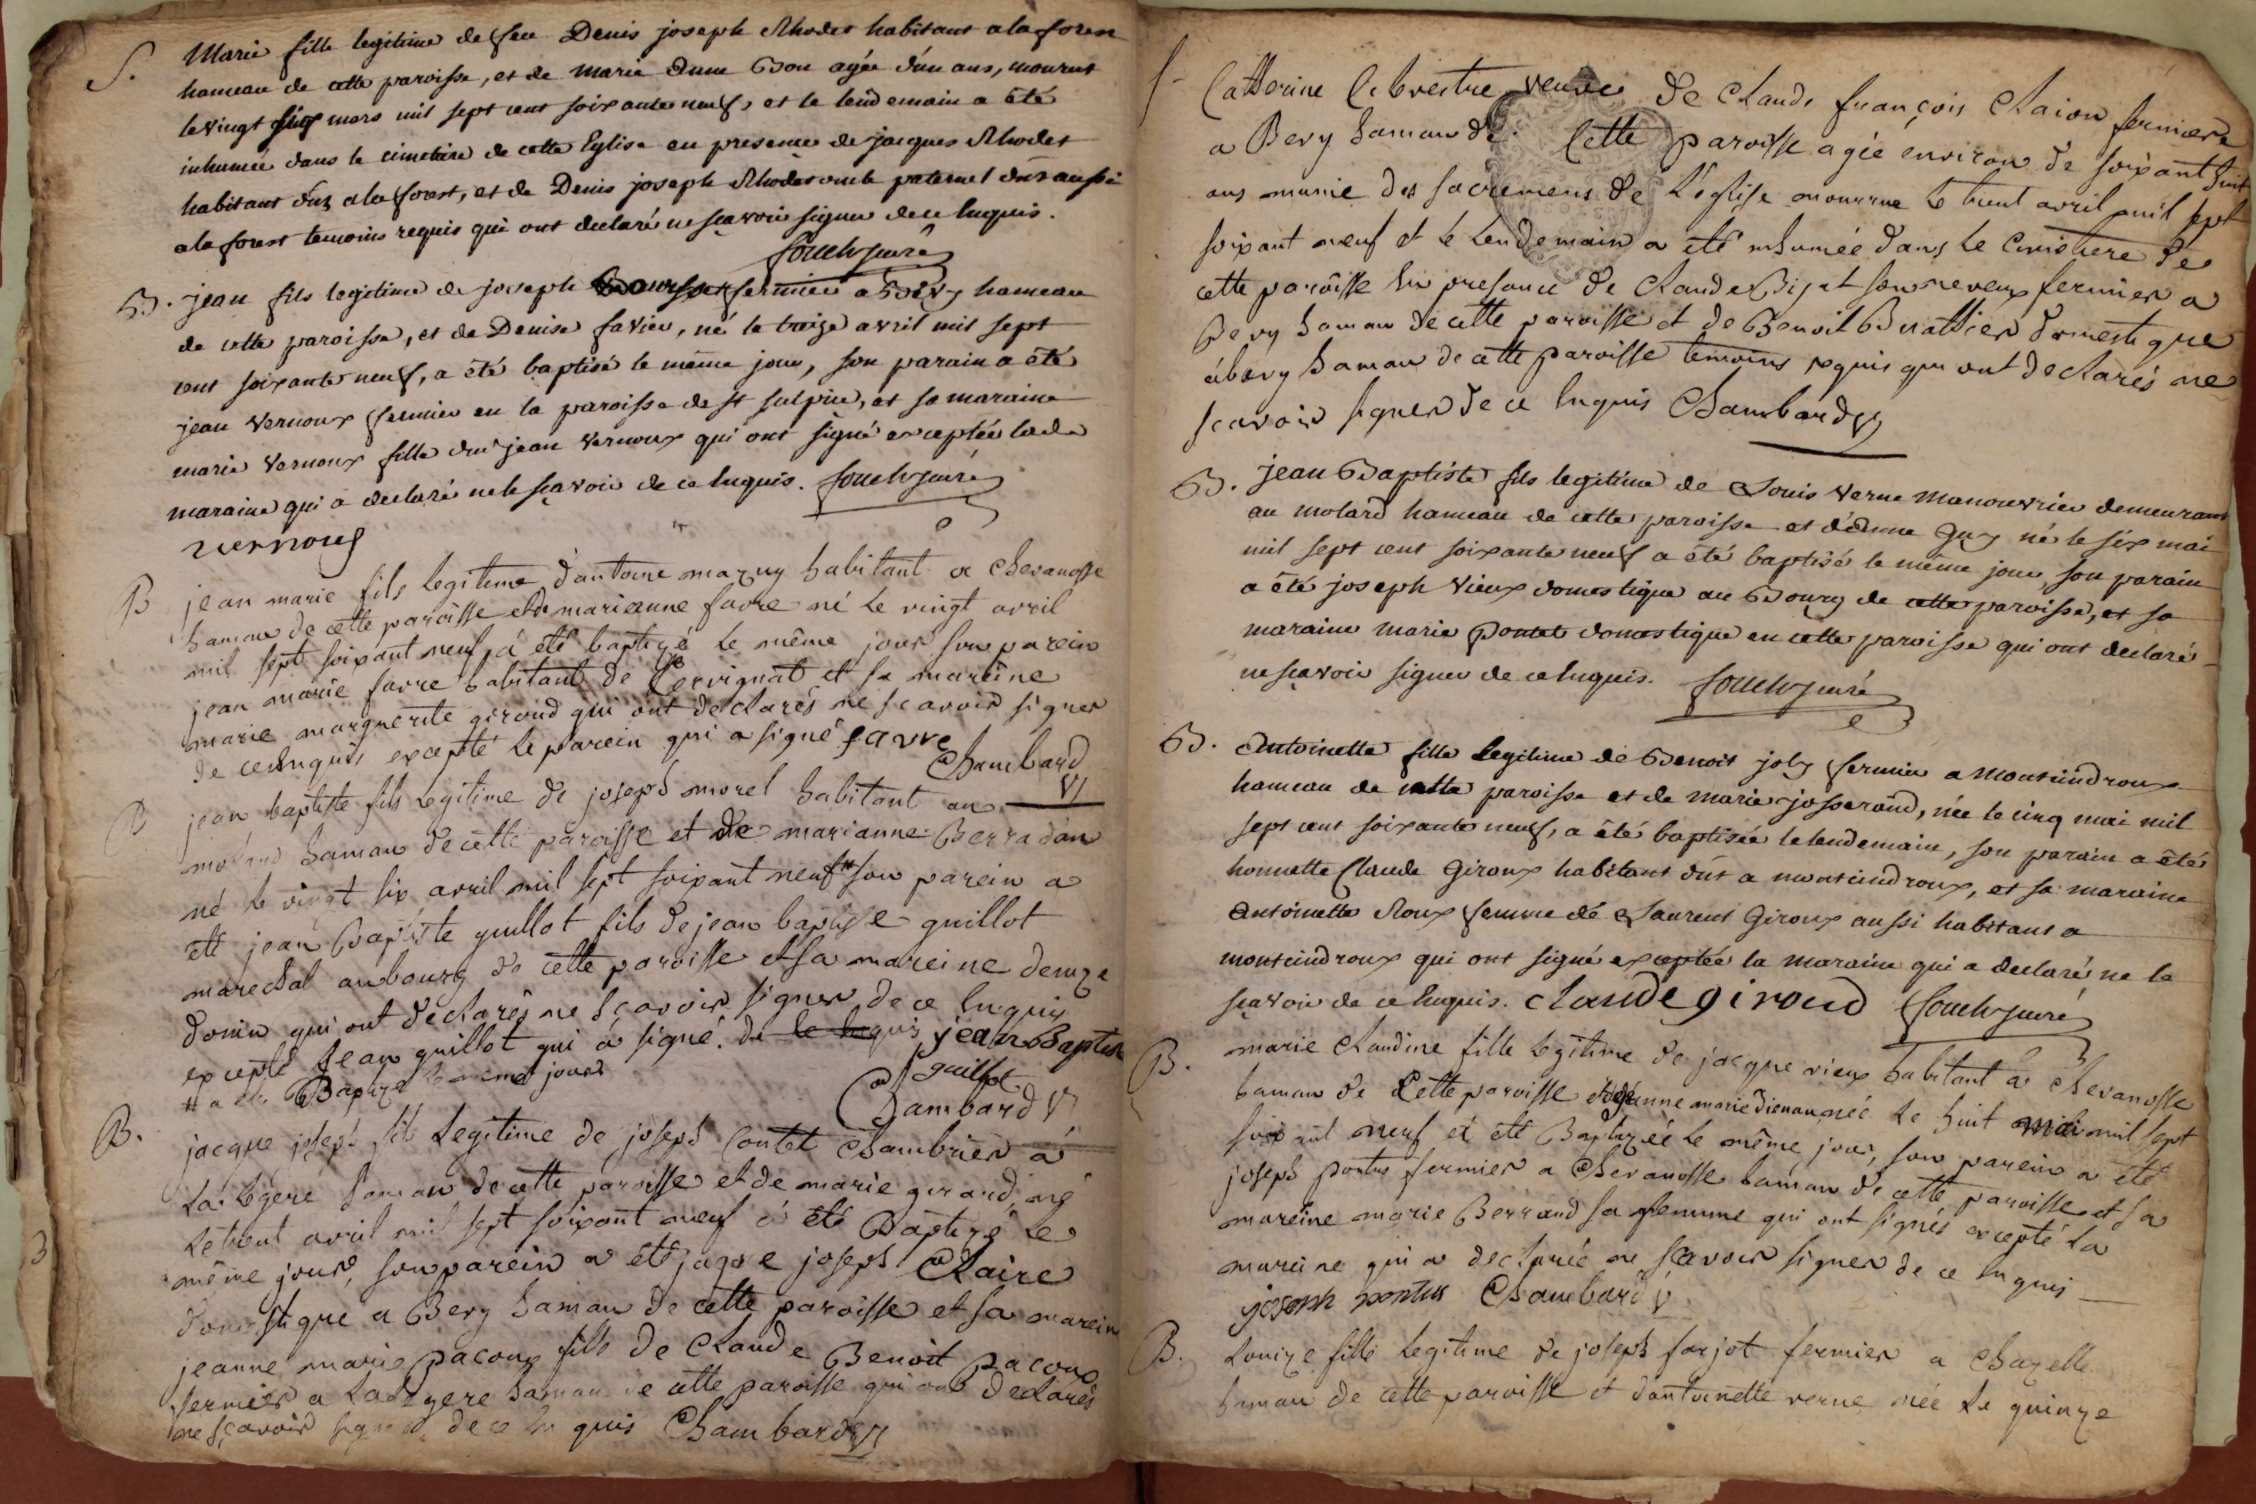 S. Marie fille legitime de feu Denis joseph Rhodet habitant a la forest
hameau de cette paroisse, et de Marie Anne Bon agée d'un ans, mourut
le vingt mars mil sept cent soixante neuf, et le lendemain a été
inhumée dans le cimetiere de cette Eglise en presence de jacques Rhodet
habitant dud a la forest, et de Denis joseph Rhodet oncle paternel aussi
a la forest temoins requis qui ont declaré ne sçavoir signer de ce Enquis.
B. jean fils legitime de joseph fermier a Bévy hameau
de cette paroisse, et de Denise favier, né le treize avril mil sept
cent soixante neuf, a été baptisé le même jour, son parain a été
jean Vernoux fermier en la paroisse de st sulpice, et sa maraine
marie Vernoux fille dud jean Vernoux qui ont signé exceptée lade
maraine qui a declaré ne le sçavoir de ce Enquis.
vernoux
B jean marie fils legitime d'antoine mazuy habitant a Chevanosse
hamau de cette paroisse et de marianne favre né le vingt avril
mil sept soixant neuf, a été baptizé le même jour son parein
jean marie favre habitant de Cervignat et sa mareine
marie marguerite giroud qui ont declarés ne scavoir signer
de ce enquis excepté le parein qui a signé favre
Chambard V
B jean baptiste fils legitime de joseph morel habitant au
molard hamau de cette paroisse et de marianne Berradan
né le vingt six avril mil sept soixant neuf # son parein a
été jean Baptiste guillot fils de jean baptiste guillot
marechal au bourg de cette paroisse et sa mareine denize
donin qui ont declarés ne sçavoir signer de ce Enquis
excepté jean guillot qui a signé. de jean Baptiste
guillot
# a été Baptizé le même jour
Chambard V
B. jacque joseph fils legitime de joseph Contet Chambrier a
La legere hamau de cette paroisse et de marie giraud, né
le trent avril mil sept soixant neuf a été Baptizé le
même jour, son parein a été jaque joseph Claire
domestique a Bevy hamau de cette paroisse et sa marein
jeanne marie pacoux fille de Claude Benoit pacoux
fermier a La legere hamau de cette paroisse qui ont declarés
ne sçavoir signer de ce en quis Chambard V
S. Catherine veuve de Claude françois Claion fermiere
a Bevy hamau de Cette paroisse agée environ de soixant huit
ans munie des sacremens de l'église mourrue le trent avril mil sept
soixant neuf et le lendemain a été inhumée dans le Cimetiere de
cette paroisse en presance de Claude Bijat son neveux fermier a
Bevy hamau de cette paroisse et de Benoit Buathier domestique
a bevy hamau de cette paroisse temoins requis qui ont declarés ne
scavoir signer de ce Enquis Chambard V
B. jean Baptiste fils legitime de Louis Verne Manouvrier demeurant
au molard hameau de cette paroisse et d'Anne Guy né le six mai
mil sept cent soixante neuf a été baptisé le même jour son parain
a été joseph Vieux domestique au Bourg de cette paroisse, et sa
maraine marie Pontet domestique en cette paroisse qui ont declaré
ne sçavoir signer de ce Enquis.
B. Antoinette fille legitime de Benoit joly fermier a Montcindroux
hameau de cette paroisse et de Marie josserand, née le cinq mai mil
sept cent soixante neuf, a été baptisée le lendemain, son parain a été
honnette Claude Giroux habitant dud a montcindroux, et sa maraine
Antoinette Roux femme de Laurent Giroux aussi habitant a
montcindroux qui ont signé exceptée la maraine qui a declaré ne le
sçavoir de ce Enquis. claude giroud
B. marie Claudine fille legitime de jacque vieux habitant a Chevanosse
hamau de Cette paroisse et de jeanne marie née le huit mai mil sept
soixant neuf et été Baptizée le même jour, son parein a été
joseph pontus fermier a Chevanosse hamau de cette paroisse et sa
mareine marie Berraud sa femme qui ont signés excepté la
mareine qui a declarée ne sçavoir signer de ce Enquis
joseph pontus Chambard V
B. Louize fille legitime de joseph farjot fermier a Chazelle
hamau de cette paroisse et d'antoinette verne née le quinze